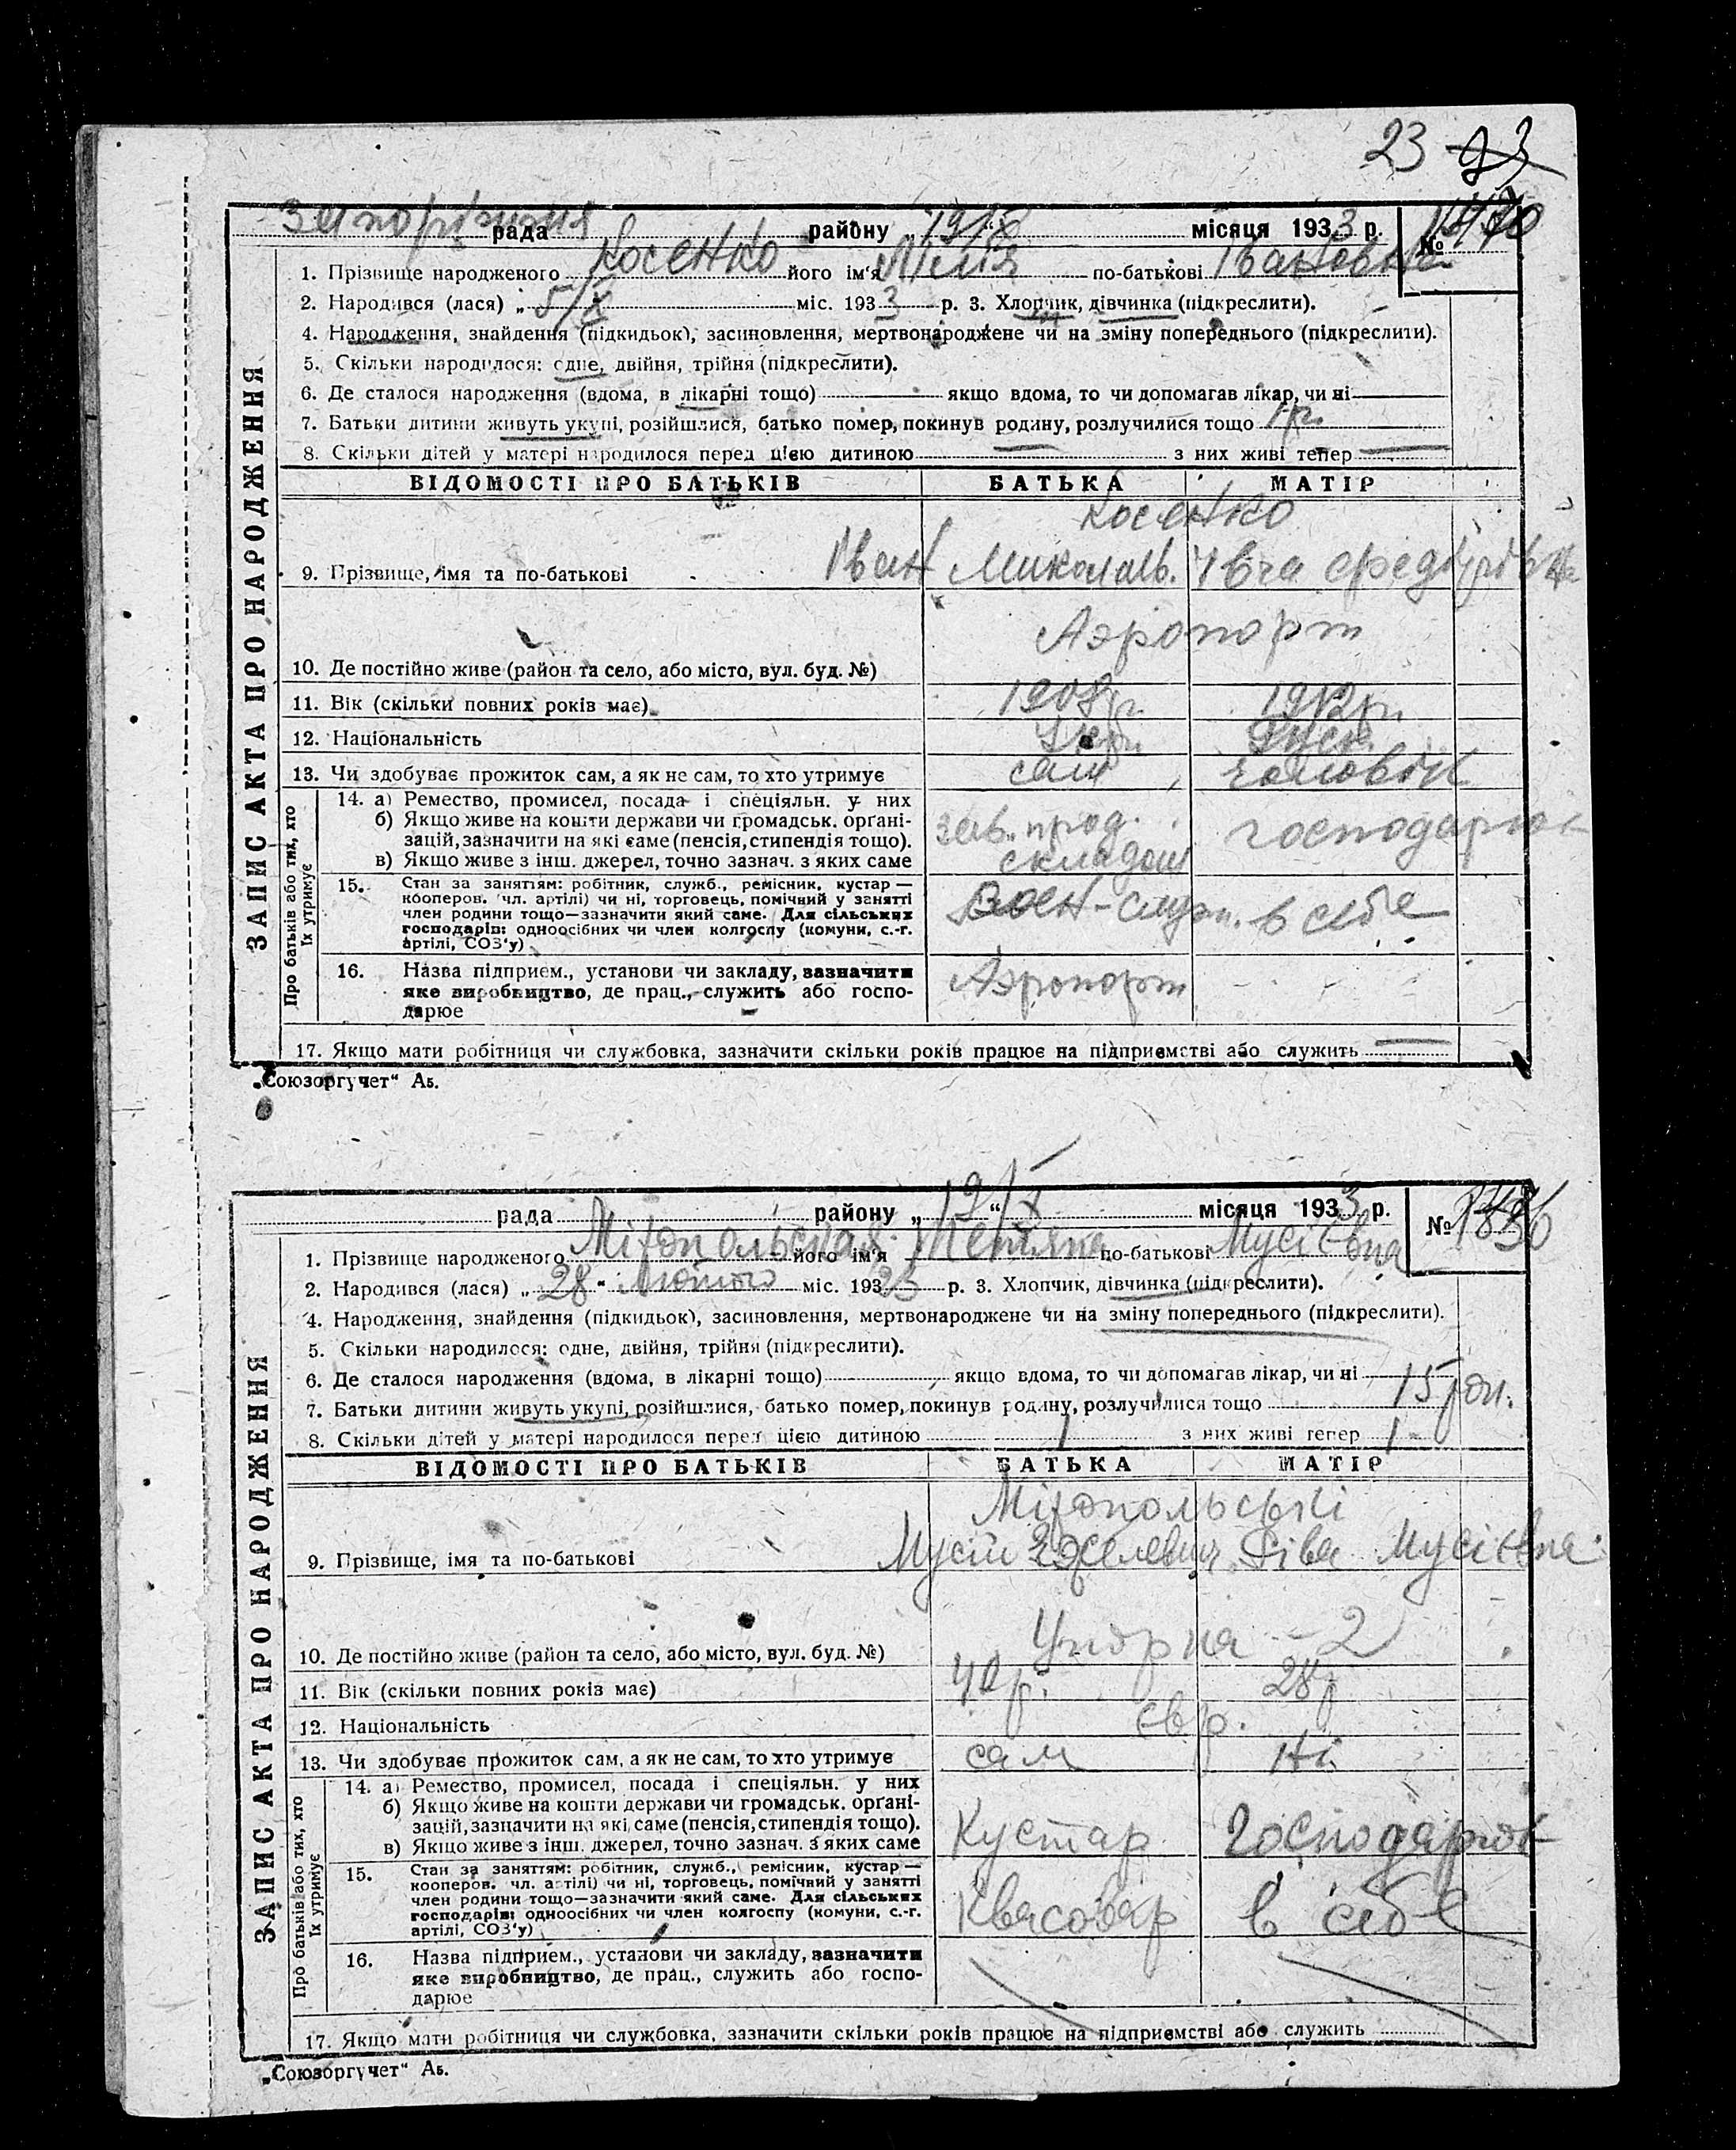 23 23
Запоріжжя рада району „19“ X місяця 1933 р. №
1. Прізвище народженого Косенко його ім'я Лілія по-батькові Івановна
2. Народився (лася) „ 5/X міс. 1933 р. 3. Хлопчик, дівчинка (підкреслити).
4. Народження, знайдення (підкидьок), засиновлення, мертвонароджене чи на зміну попереднього (підкреслити).
5. Скільки народилося: одне, двійня, трійня (підкреслити).
6. Де сталося народження (вдома, в лікарні тощо) якщо вдома, то чи допомагав лікар, чи ні
7. Батьки дитини живуть укупі, розійшлися, батько помер, покинув родину, розлучилися тощо 1 р.
8. Скільки дітей у матері народилося перед цією дитиною — з них живі тепер —
ЗАПИС АКТА ПРО НАРОДЖЕННЯ
ВІДОМОСТІ ПРО БАТЬКІВ БАТЬКА МАТІР
Косенко
9. Прізвище, імя та по-батькові Іван Миколаів.
Аэропорт
10. Де постійно живе (район та село, або місто, вул. буд. №)
11. Вік (скільки повних років має) 1908 р. 1912 р.
12. Національність Укр.
13. Чи здобуває прожиток сам, а як не сам, то хто утримує сам чоловік
Про батьків або тих, хто їх утримує
14. а) Ремество, промисел, посада і спеціяльн. у них
б) Якщо живе на кошти держави чи громадськ. органі-
зацій, зазначити на які саме (пенсія, стипендія тощо).
в) Якщо живе з інш. джерел, точно зазнач. з яких саме
зав. прод. складом господарює
15. Стан за заняттям: робітник, служб., ремісник, кустар —
кооперов. чл. артілі) чи ні, торговець, помічний у занятті
член родини тощо—зазначити який саме. Для сільських
господарів: одноосібних чи член колгоспу (комуни, с.-г.
артілі, СОЗ'у)
Воен-служ. в себе
16. Назва підприєм., установи чи закладу, зазначити
яке виробництво, де прац., служить або госпо-
дарює
Аэропорт
17. Якщо мати робітниця чи службовка, зазначити скільки років працює на підприємстві або служить —
„Союзоргучет“ Аз.
рада району „19“ X місяця 1933 р. №
1. Прізвище народженого Міропольская його ім'я Тетяна по-батькові Мусіївна
2. Народився (лася) „28“ Лютого міс. 193 23 р. 3. Хлопчик, дівчинка (підкреслити).
4. Народження, знайдення (підкидьок), засиновлення, мертвонароджене чи на зміну попереднього (підкреслити).
5. Скільки народилося: одне, двійня, трійня (підкреслити).
6. Де сталося народження (вдома, в лікарні тощо) якщо вдома, то чи допомагав лікар, чи ні
7. Батьки дитини живуть укупі, розійшлися, батько помер, покинув родину, розлучилися тощо 15
8. Скільки дітей у матері народилося перед цією дитиною 1 з них живі тепер 1
ЗАПИС АКТА ПРО НАРОДЖЕННЯ
ВІДОМОСТІ ПРО БАТЬКІВ БАТЬКА МАТІР
Міропольські
9. Прізвище, імя та по-батькові Мусій Ріва Мусіївна
2
10. Де постійно живе (район та село, або місто, вул. буд. №)
11. Вік (скільки повних років має) 42 р. 28 р
12. Національність євр.
13. Чи здобуває прожиток сам, а як не сам, то хто утримує сам ні
Про батьків або тих, хто їх утримує
14. а) Ремество, промисел, посада і спеціяльн. у них
б) Якщо живе на кошти держави чи громадськ. органі-
зацій, зазначити на які саме (пенсія, стипендія тощо).
в) Якщо живе з інш. джерел, точно зазнач. з яких саме
Кустар господарює
15. Стан за заняттям: робітник, служб., ремісник, кустар —
кооперов. чл. артілі) чи ні, торговець, помічний у занятті
член родини тощо—зазначити який саме. Для сільських
господарів: одноосібних чи член колгоспу (комуни, с.-г.
артілі, СОЗ'у)
Квасовар в себе
16. Назва підприєм., установи чи закладу, зазначити
яке виробництво, де прац., служить або госпо-
дарює
17. Якщо мати робітниця чи службовка, зазначити скільки років працює на підприємстві або служить
„Союзоргучет“ Аз.